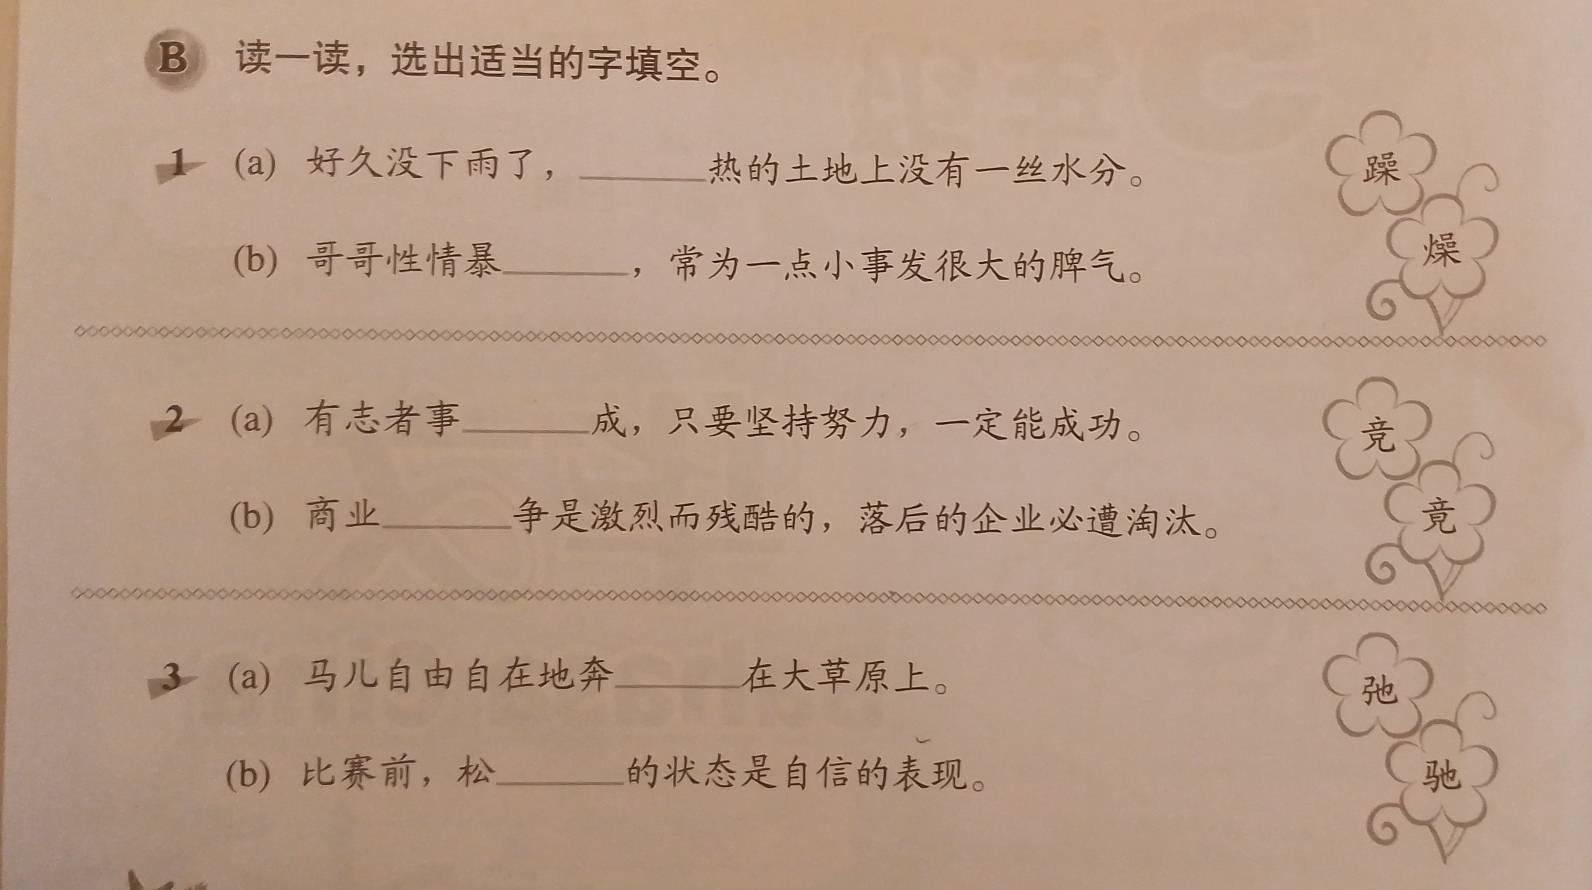 B 读一读，选出适当的字填空。
1 (a) 好久没下雨了，______热的土地上没有一丝水分。
躁
(b) 哥哥性情暴______，常为一点小事发很大的脾气。
燥
2 (a) 有志者事______成，只要坚持努力，一定能成功。
竞
(b) 商业______争是激烈而残酷的，落后的企业必遭淘汰。
竟
3 (a) 马儿自由自在地奔______在大草原上。
弛
(b) 比赛前，松______的状态是自信的表现。
驰